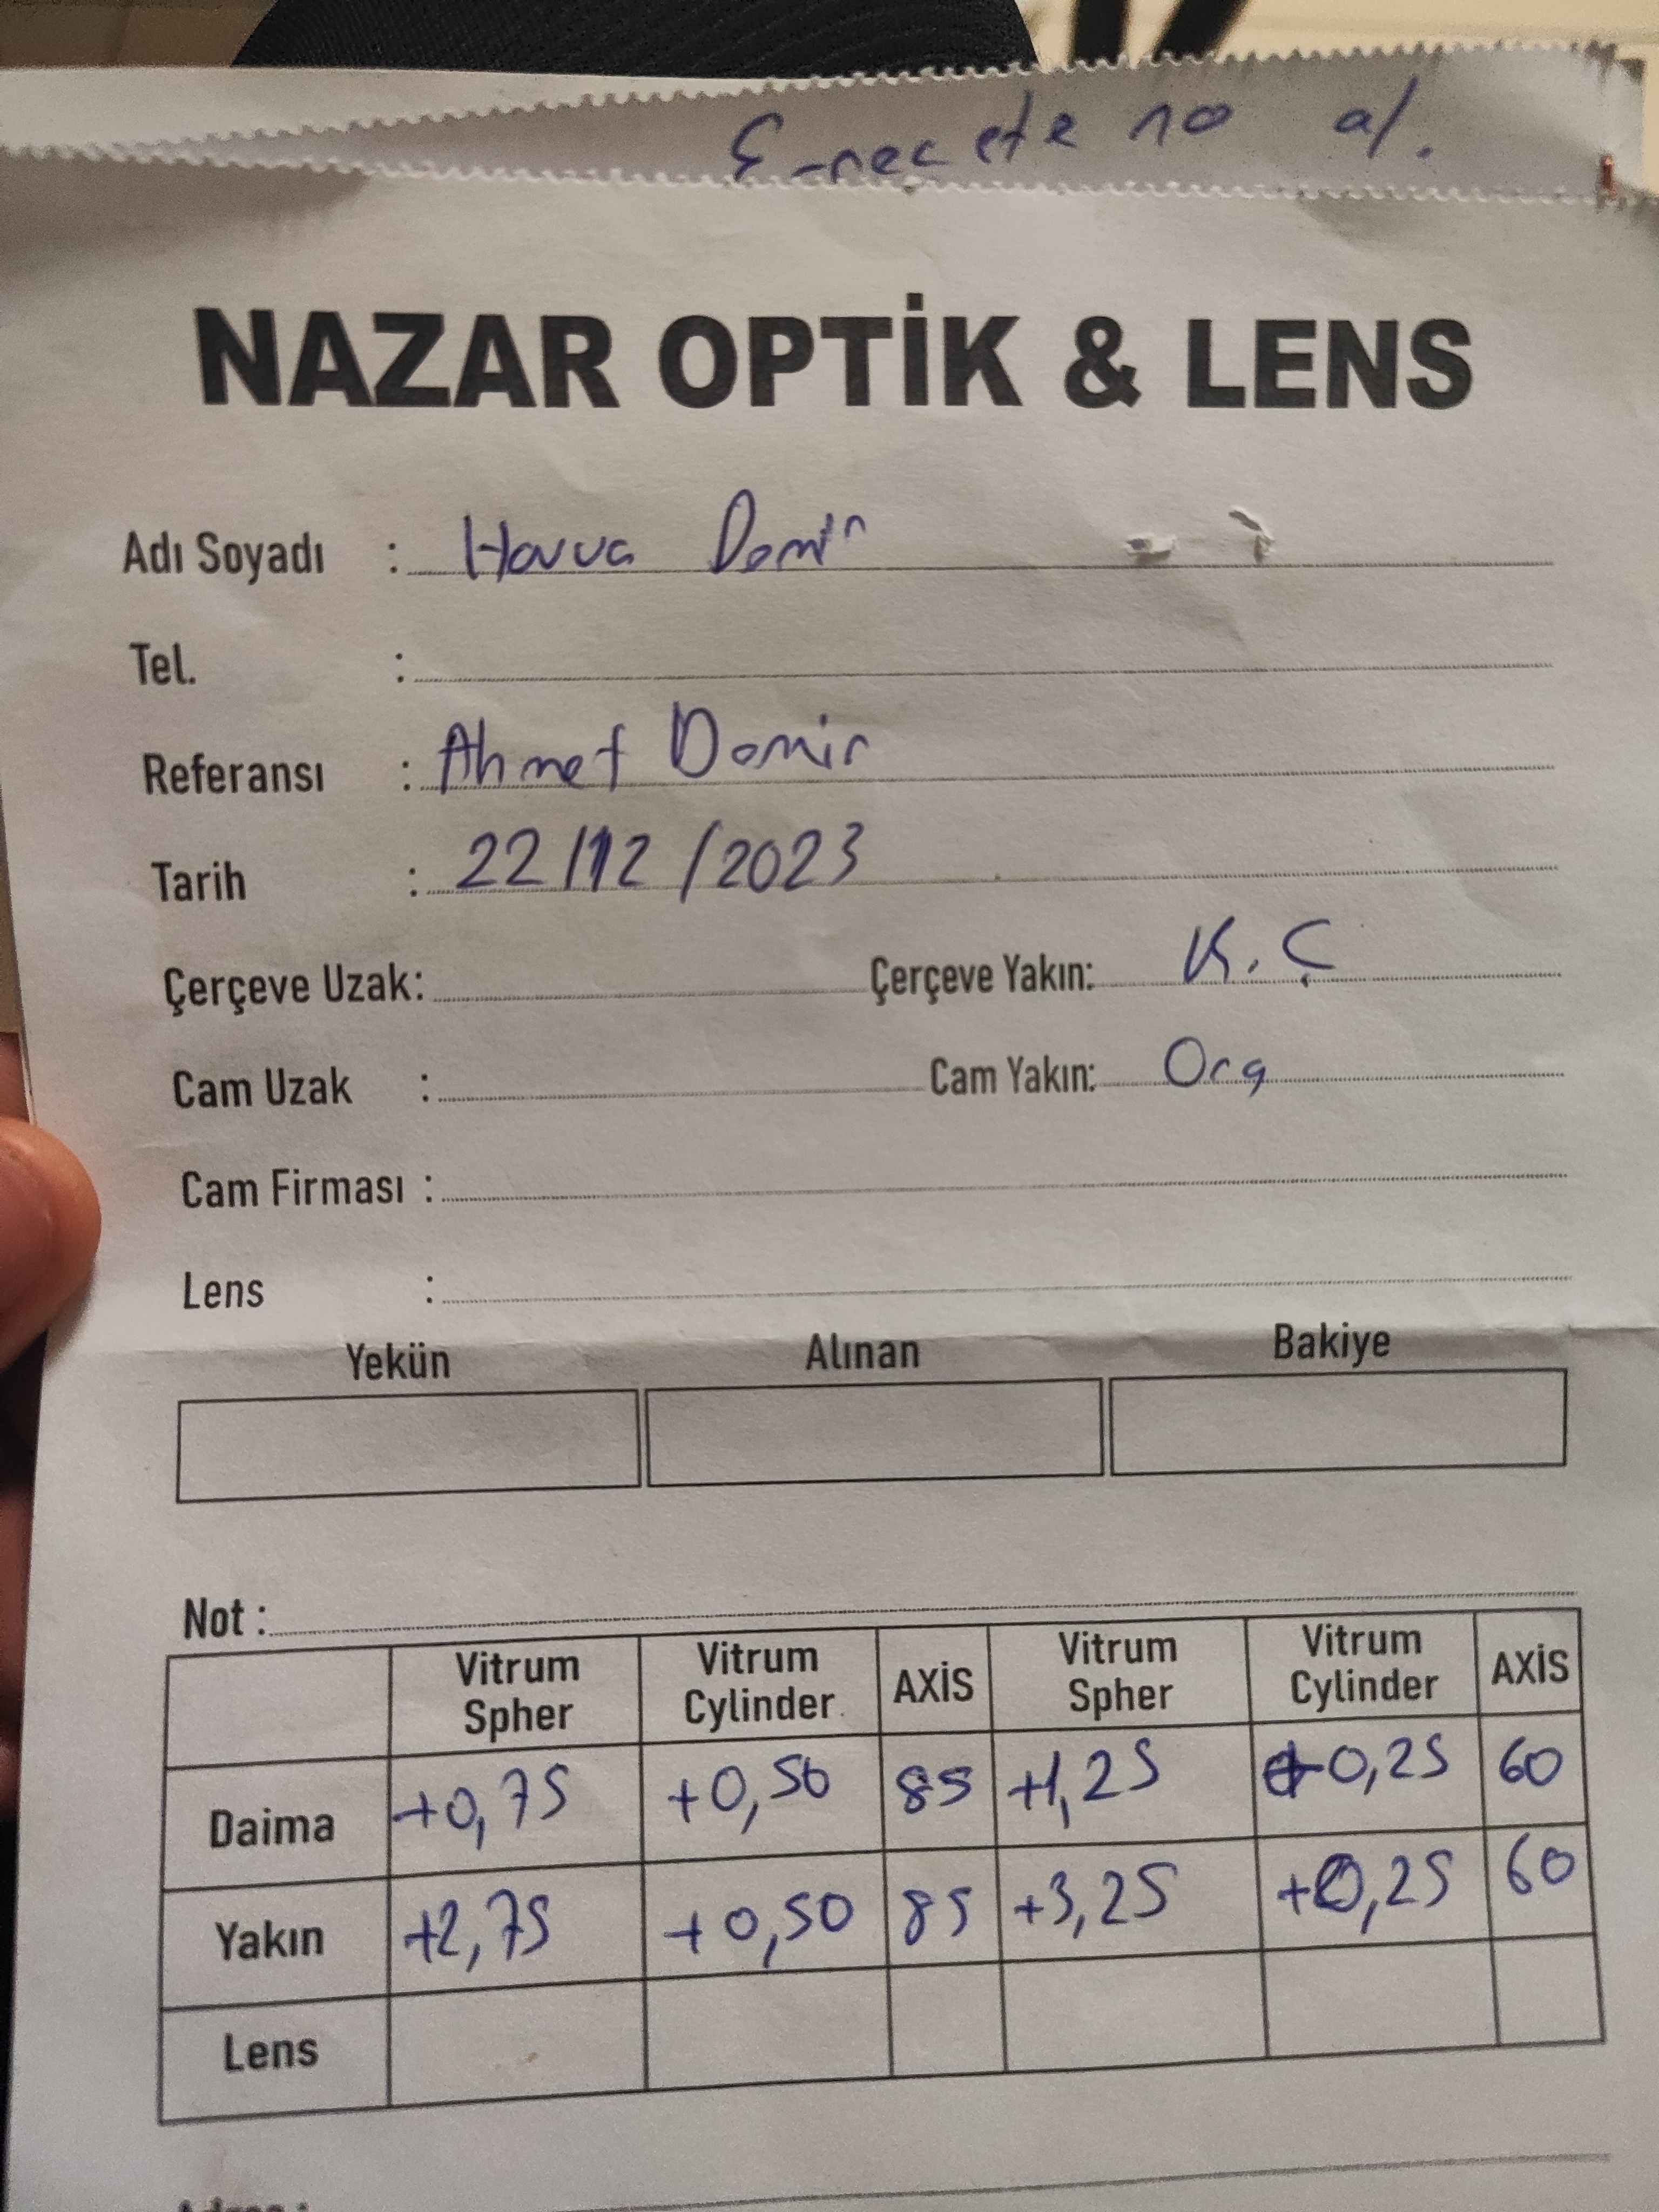 E-reçete no al.
NAZAR OPTİK & LENS
Adı Soyadı : Havva Demir
Tel. :
Referansı : Ahmet Demir
Tarih : 22/12/2023
Çerçeve Uzak: Çerçeve Yakın: K.Ç
Cam Uzak : Cam Yakın: Org
Cam Firması :
Lens :
Yekün Alınan Bakiye
Not :
Vitrum Spher Vitrum Cylinder AXİS Vitrum Spher Vitrum Cylinder AXİS
Daima +0,75 +0,50 85 +1,25 +0,25 60
Yakın +2,75 +0,50 85 +3,25 +0,25 60
Lens